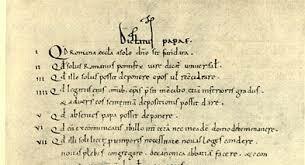 Dictatus papae.
I Qd Romana eccla a solo dno sit fundata.
II Qd solus Romanus pontifex iure dicat universalis.
III Qd ille solus possit deponere epos ul reconciliare.
IIII Qd legatus eius omib; epis presit in concilio etiā inferioris gradus
& adversus eos sententiā depositionis possit dare.
V Qd absentes papa possit deponere.
VI Qd cū excommunicatis ab illo int cetera nec in eadē domo debem manere.
VII Qd illi soli licet p temporis necessitate novas leges condere
novas plebes congregare, de canonica abbatiā facere &